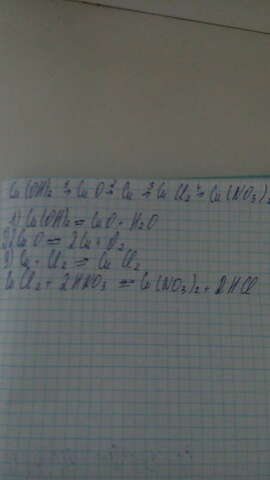 Cu(OH)₂ ¹→ CuO ²→ Cu ³→ CuCl₂ ⁴→ Cu(NO₃)₂
1) Cu(OH)₂ = CuO + H₂O
2) 2CuO = 2Cu + O₂
3) Cu + Cl₂ = CuCl₂
CuCl₂ + 2HNO₃ = Cu(NO₃)₂ + 2HCl